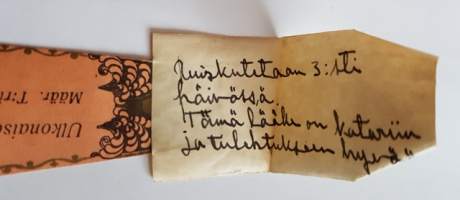 Ruiskutetaan 3:sti
päivässä.
Tämä lääke on Katariin
ja tulehtukseen hyvä "
Ulkonaise
Määr. T:ri